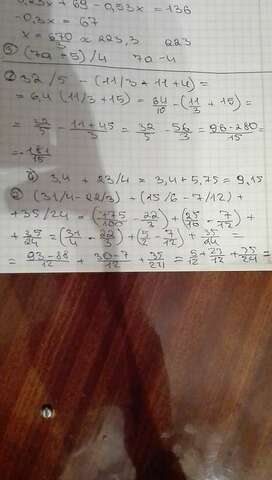 0,23x + 69 - 0,53x = 136
-0,3x = 67
x = 670/3 ≈ 223,3 223
⑤ (7a + 5) / 4 7a - 4
② 32/5 - (11/3 + 11 + 4) =
= 6,4 (11/3 + 15) = 64/10 - (11/3 + 15) =
= 32/5 - 11+45/3 = 32/5 - 56/3 = 96-280/15 =
= -181/15
б) 3,4 + 23/4 = 3,4 + 5,75 = 9,15
② (31/4 - 22/3) + (15/6 - 7/12) +
+ 35/24 = (775/100 - 22/3) + (25/10 - 7/12) +
+ 35/24 = (31/4 - 22/3) + (5/2 - 7/12) + 35/24 =
= 93-88/12 + 30-7/12 + 35/24 = 5/12 + 23/12 + 35/24 =